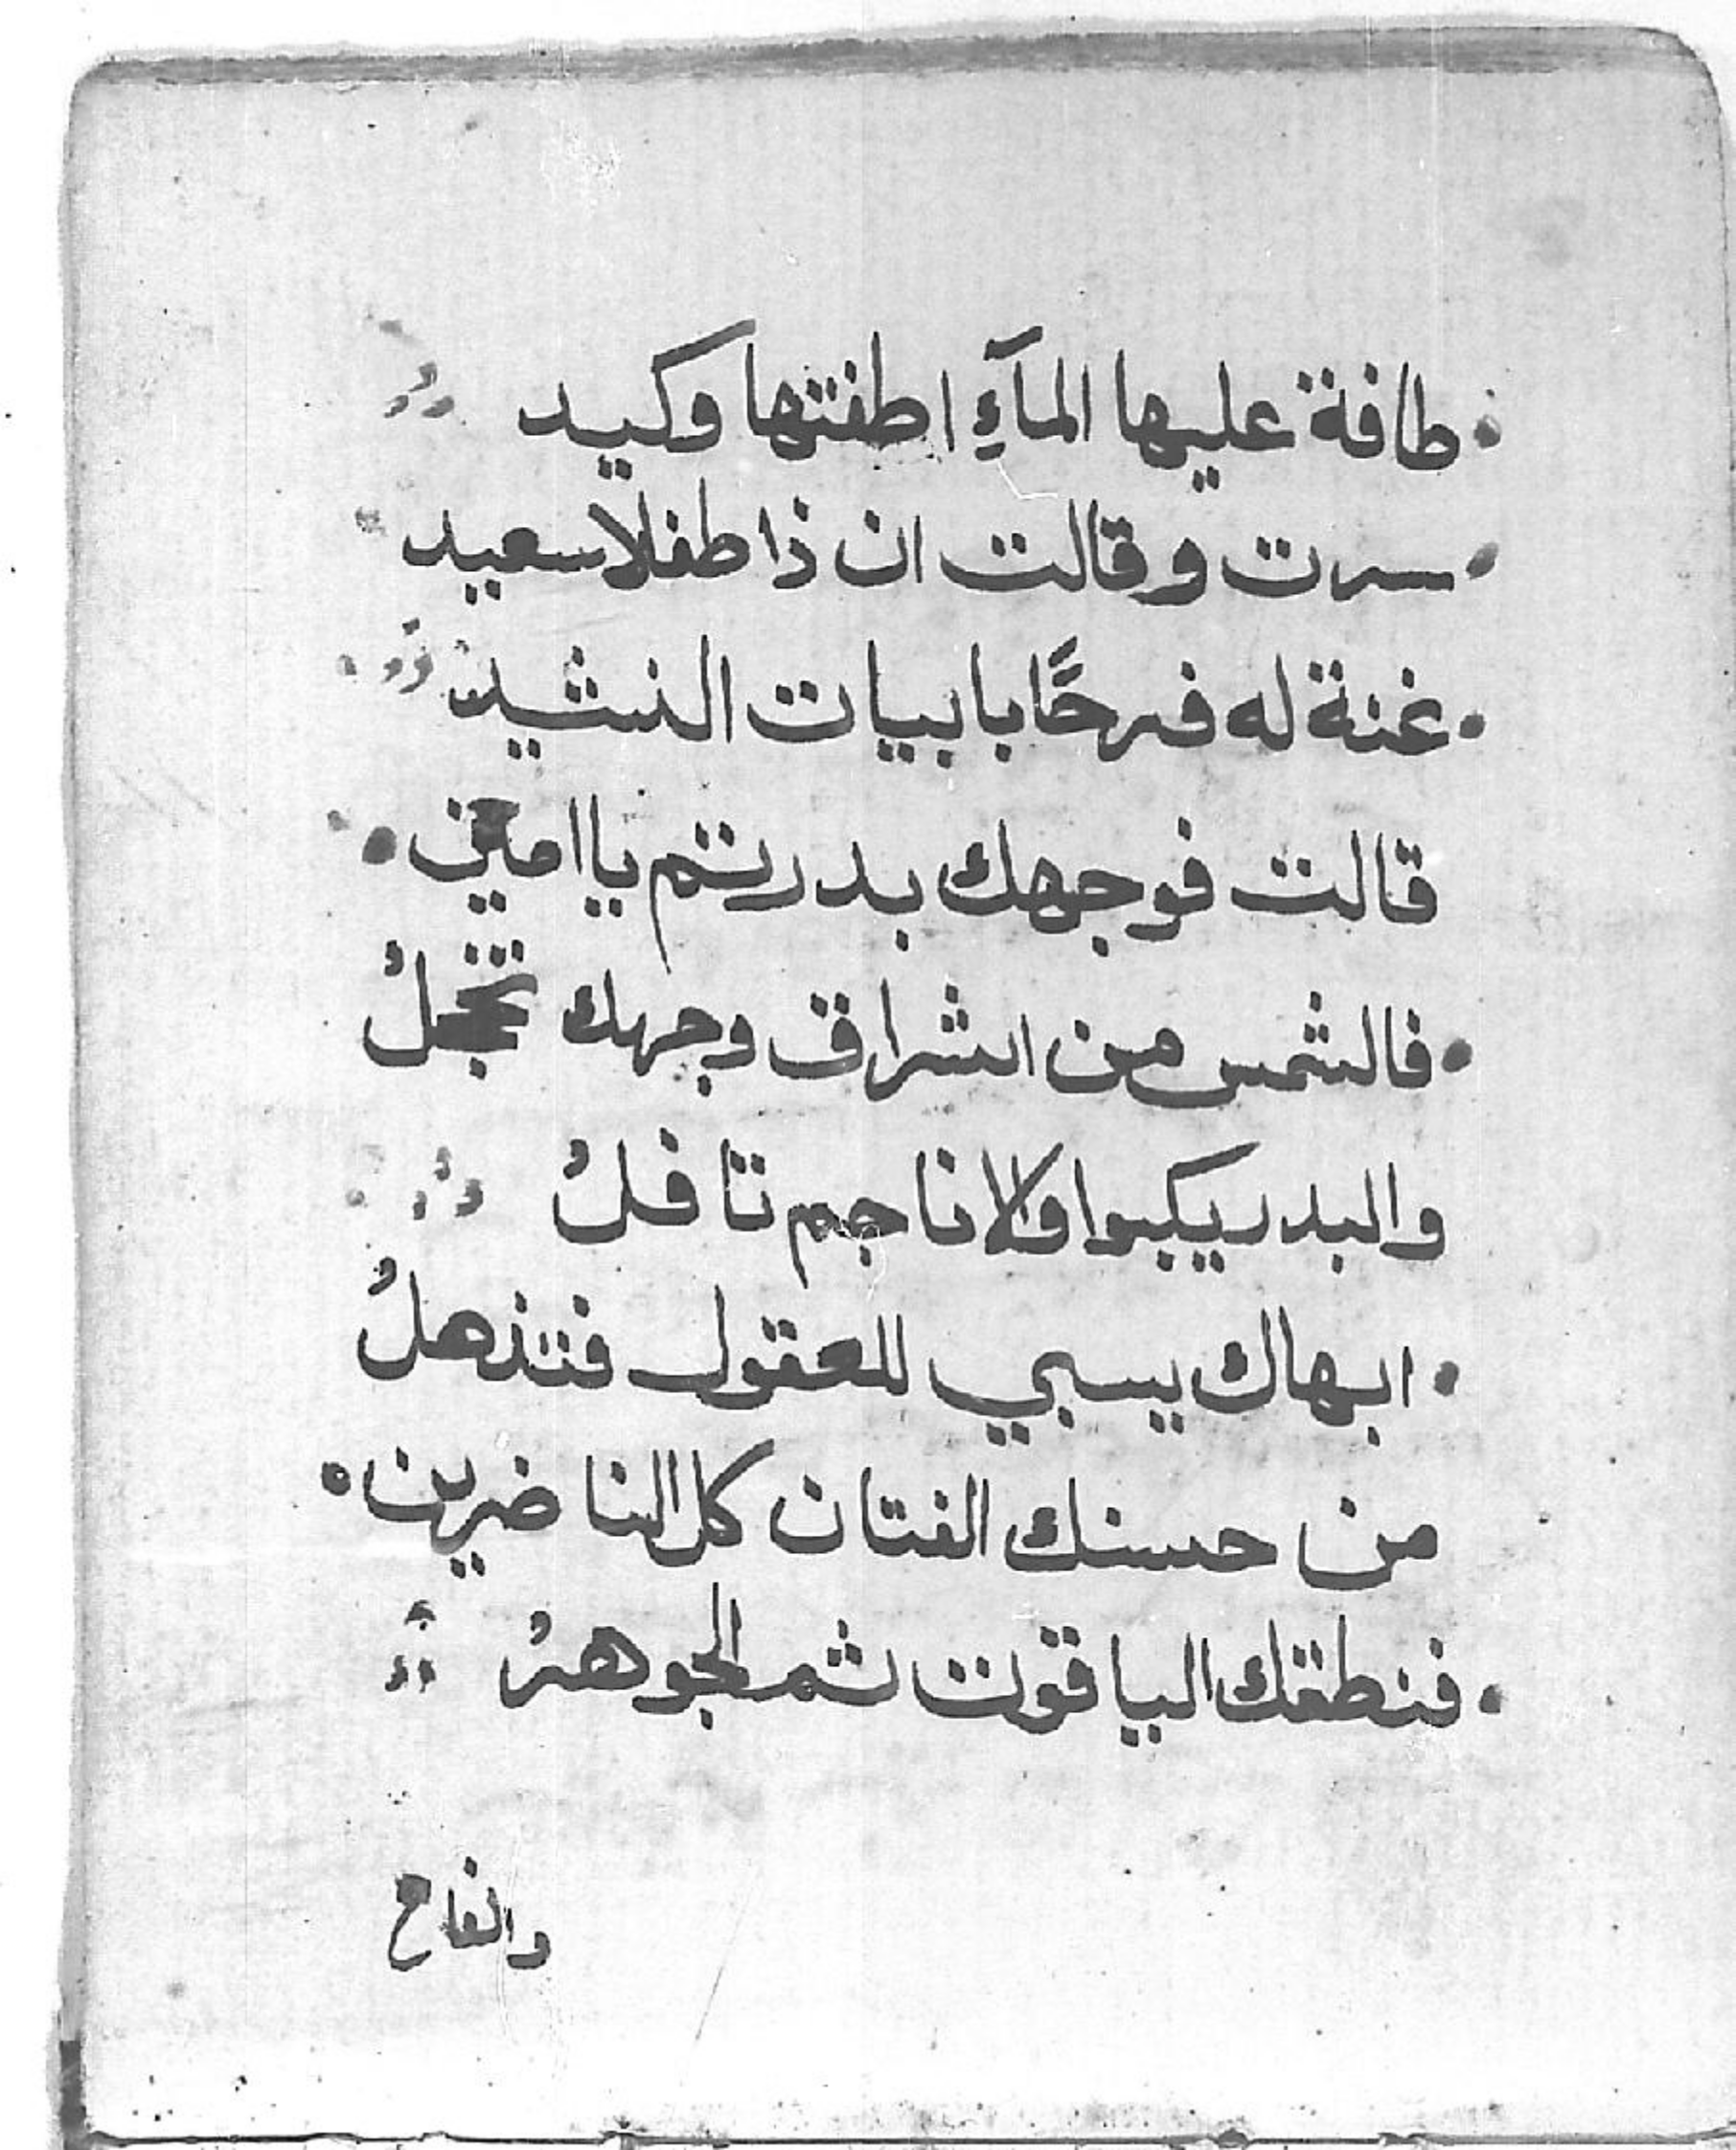 طافة عليها المآءِ اطفتها وكيد
سرت وقالت ان ذا طفلا سعيد
غنة له فرحًا بابيات النشيد
قالت فوجهك بدر تم يا امين
فالشمس من اشراق وجهك تخجلُ
والبدر يكبوا والاناجم تافلُ
ابهاك يسبي للعقول فتذهلُ
من حسنك الفتان كل الناضرين
فنطقك الياقوت ثم الجوهرُ
والفاح